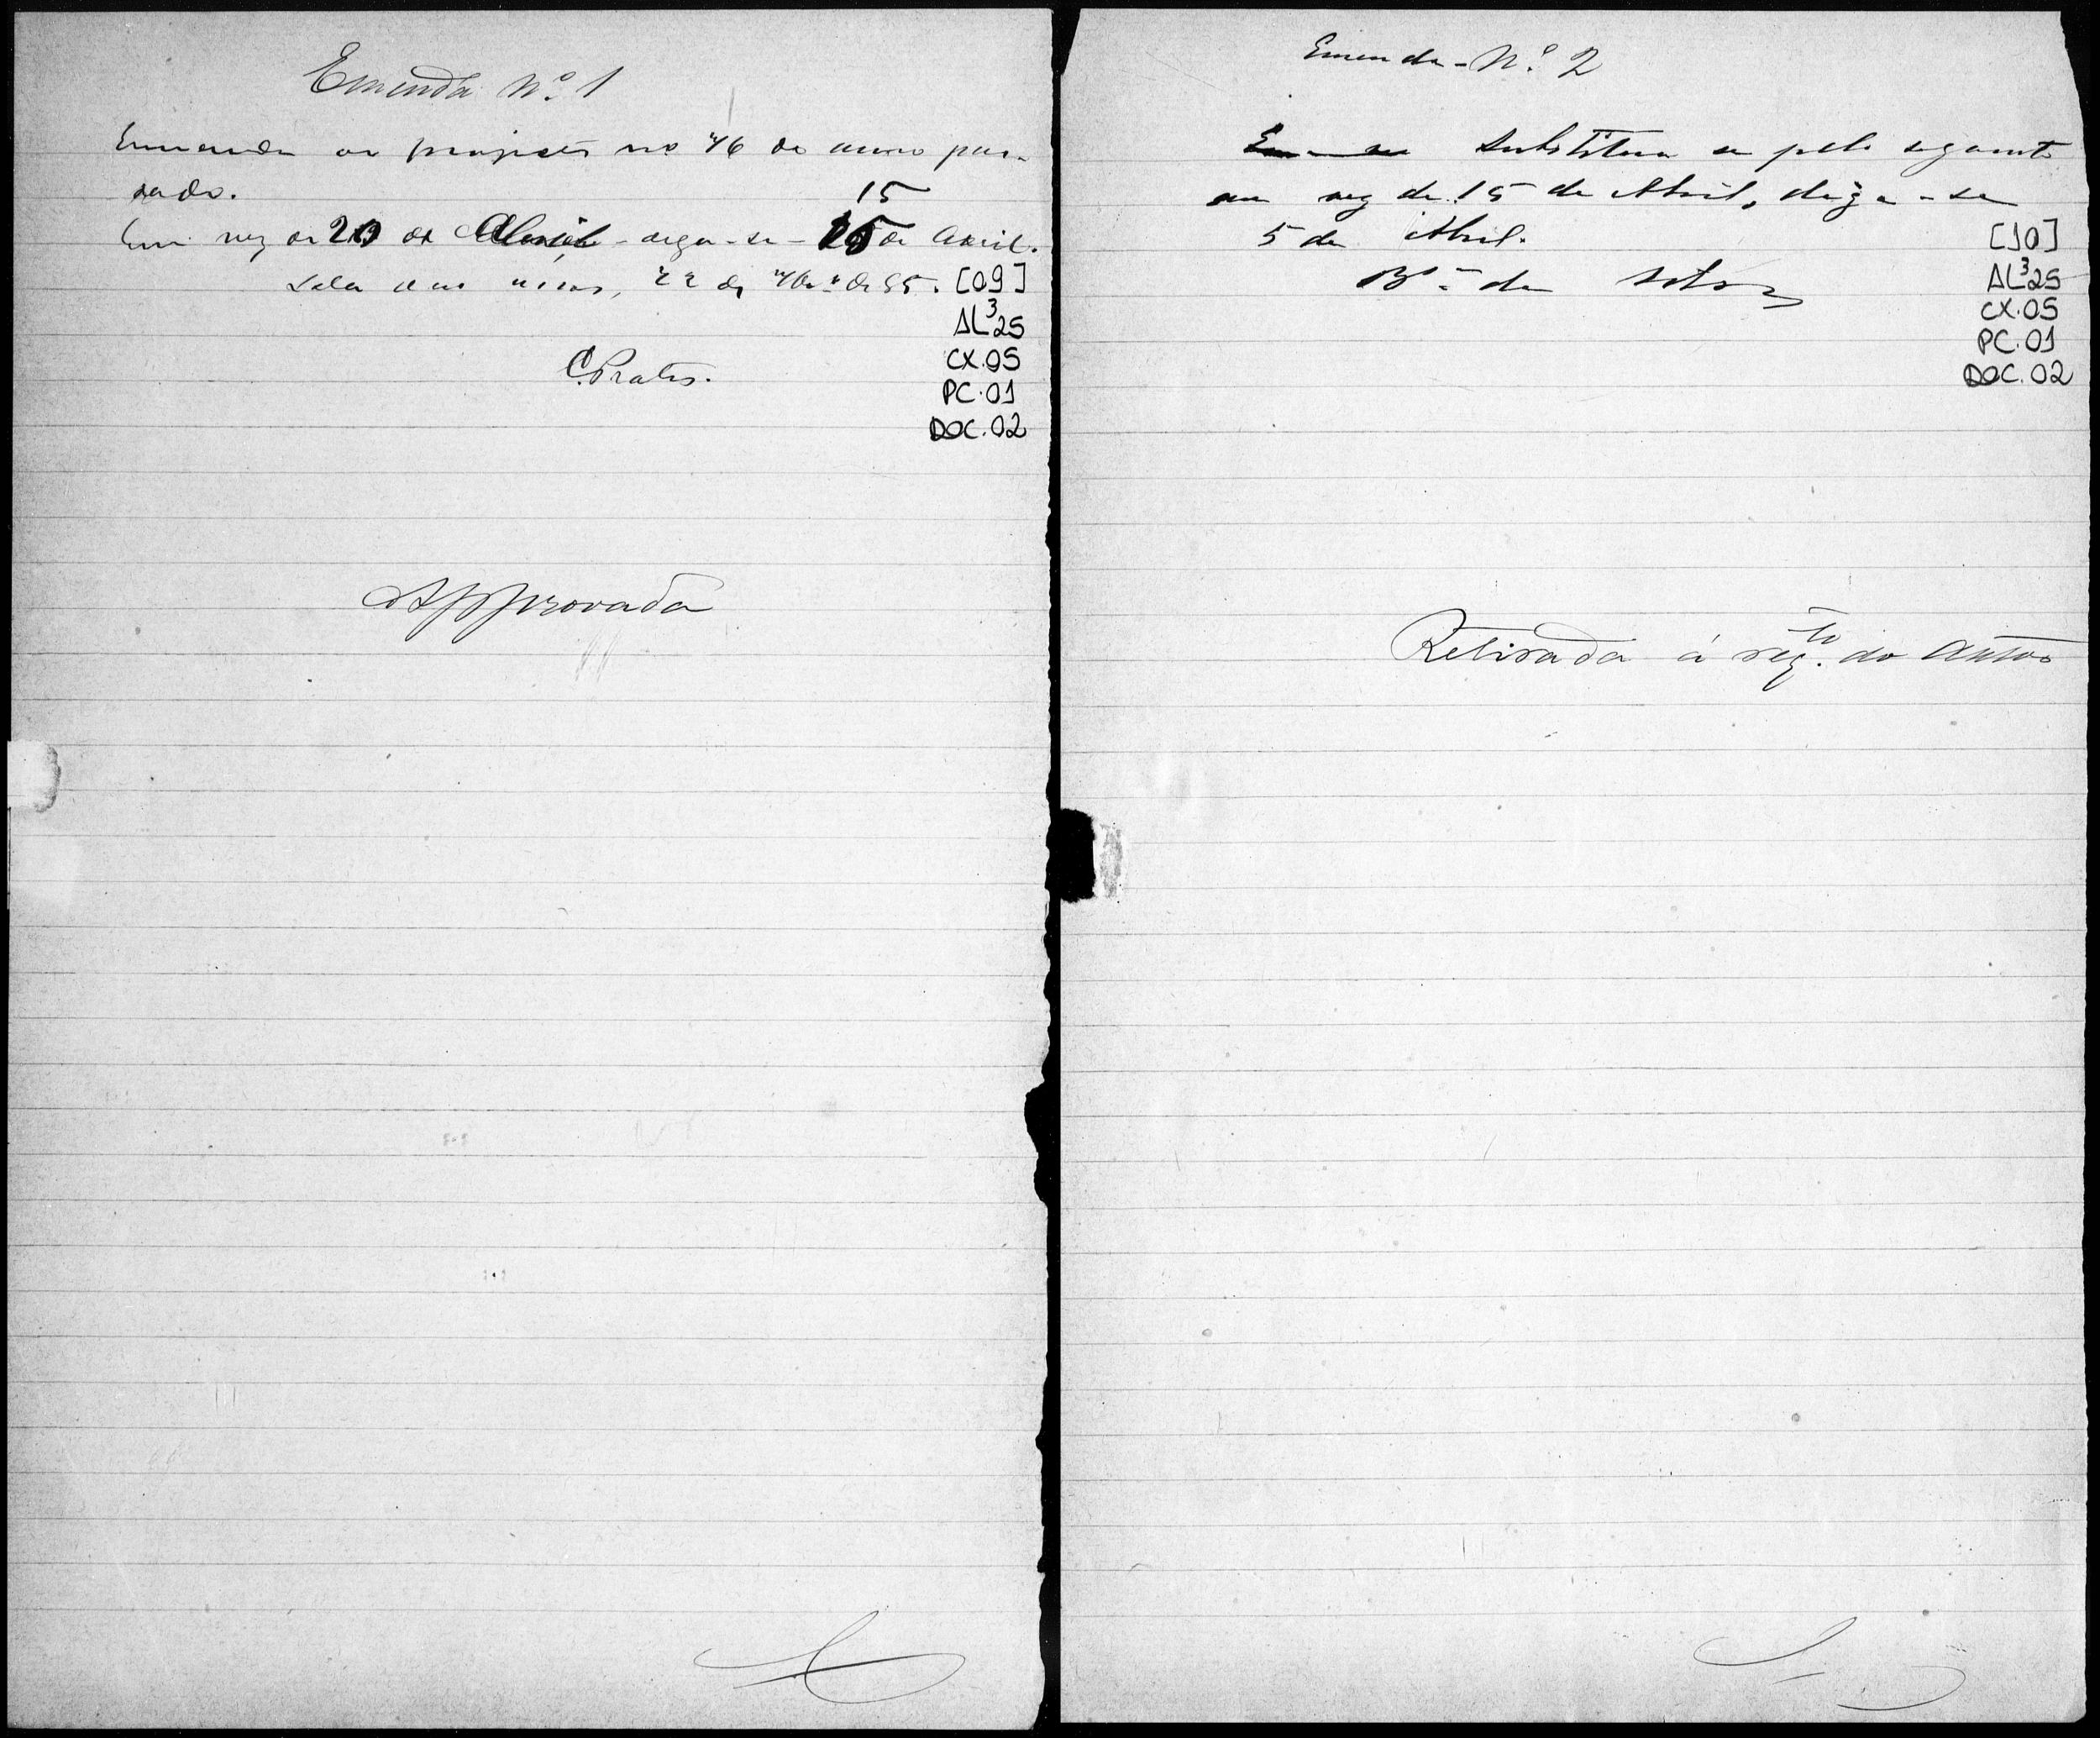 Emenda Nº 1
Emenda ao projecto nº 46 do anno pas-
sado.
15
Em vez de 20 de Abril - diga-se - 15 de Abril.
Sala das ... , 22 de ... de 95.
C. Prates.
[09]
AL³25
CX.05
PC.01
DOC.02
Approvada
Emenda - Nº 2
Substitua se pelo seguinte
em vez de 15 de Abril, diga-se
5 de Abril.
[10]
AL³25
CX.05
PC.01
DOC.02
Retirada á reqto. do Autor